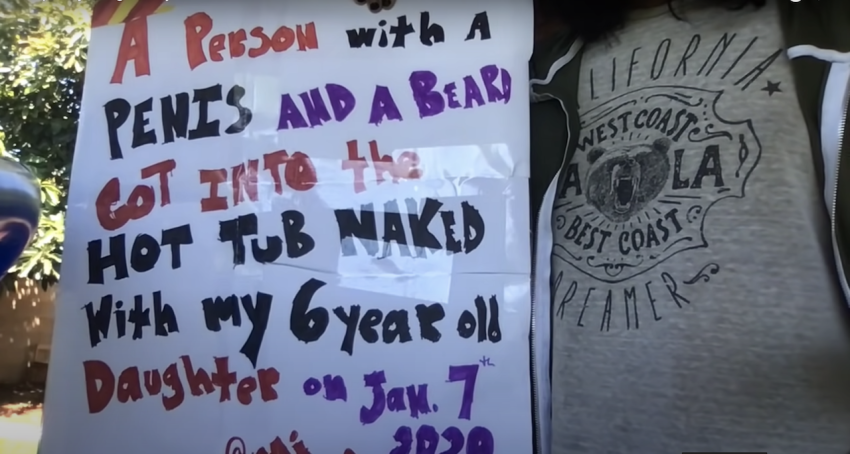 A Person with A
PENIS AND A BEARD
GOT INTO the
HOT TUB NAKED
With my 6 year old
Daughter on Jan. 7th
2020
LIFORNIA
WEST COAST
LA
BEST COAST
REAMER